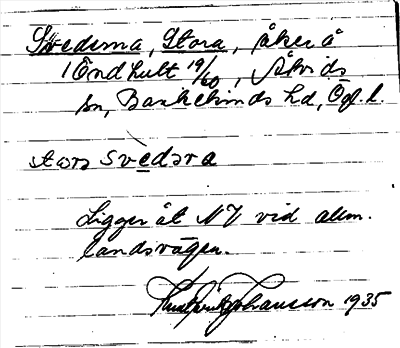 Svedsma, Stora, åker å
1 Öndhult 19/60, Åtvids
sn, Bankekinds hd, Ögl. l.
stora svedsra
Ligger åt NV vid allm.
landsvägen.
Johansson 1935